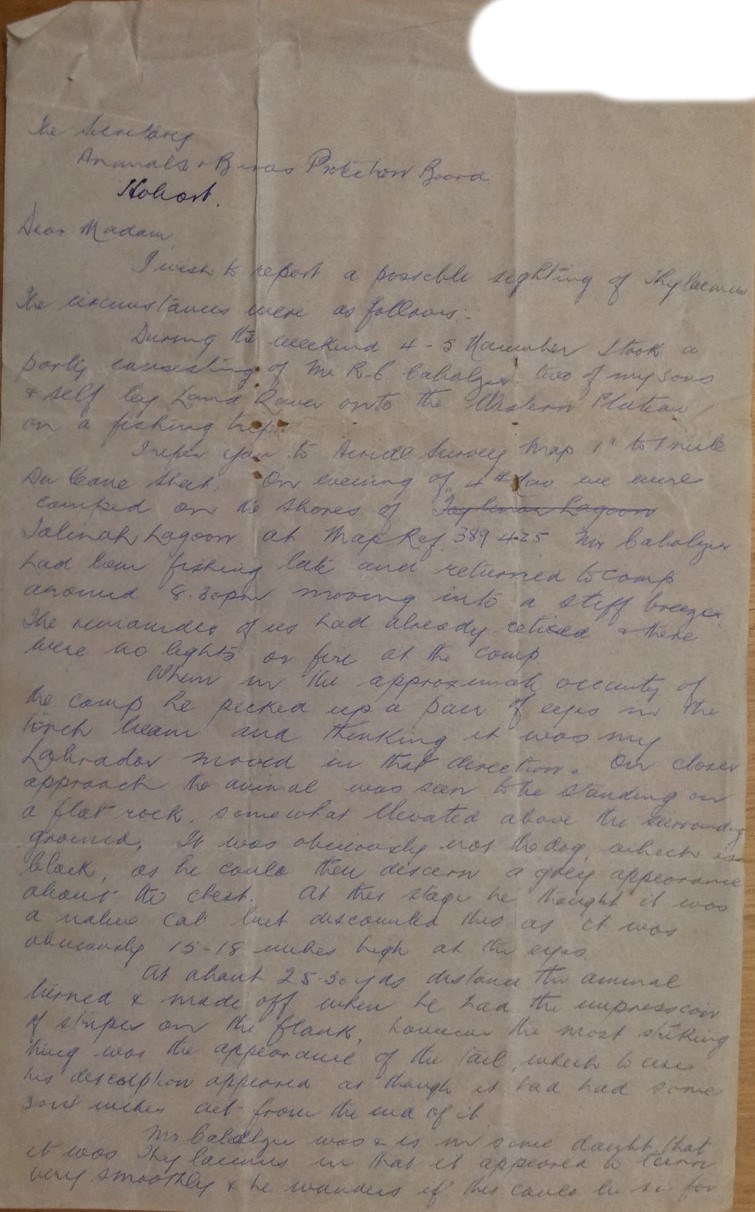 The Secretary
Animals & Birds Protection Board
Hobart.
Dear Madam,
I wish to report a possible sighting of Thylacinus
The circumstances were as follows:-
During the weekend 4-5 November I took a
party consisting of Mr R.B. two of my sons
& self by Land Rover onto the Western Plateau
on a fishing trip.
I refer you to Survey Map 1" to 1 mile
Du Cane Sheet. On evening of 4th Nov we were
camped on the shores of Lagoon
Talinah Lagoon at Map Ref. 389425 Mr
had been fishing late and returned to camp
around 8.30pm moving into a stiff breeze.
The remainder of us had already retired & there
were no lights or fire at the camp.
When in the approximate of
the camp he picked up a pair of eyes in the
torch beam and thinking it was my
Labrador moved in that direction. On closer
approach the animal was seen to be standing on
a flat rock, somewhat elevated above the surrounding
ground. It was obviously not the dog, which is
black, as he could then discern a grey appearance
about the chest. At this stage he thought it was
a native cat but discounted this as it was
obviously 15-18 inches high at the eyes.
At about 25-30 yds distance the animal
turned & made off when he had the impression
of stripes on the flank, however the most striking
thing was the appearance of the tail, which to use
his description appeared as though it had had some
inches cut from the end of it.
Mr was & is in some doubt that
it was Thylacinus in that it appeared to turn
very smoothly & he wonders if this could be so for